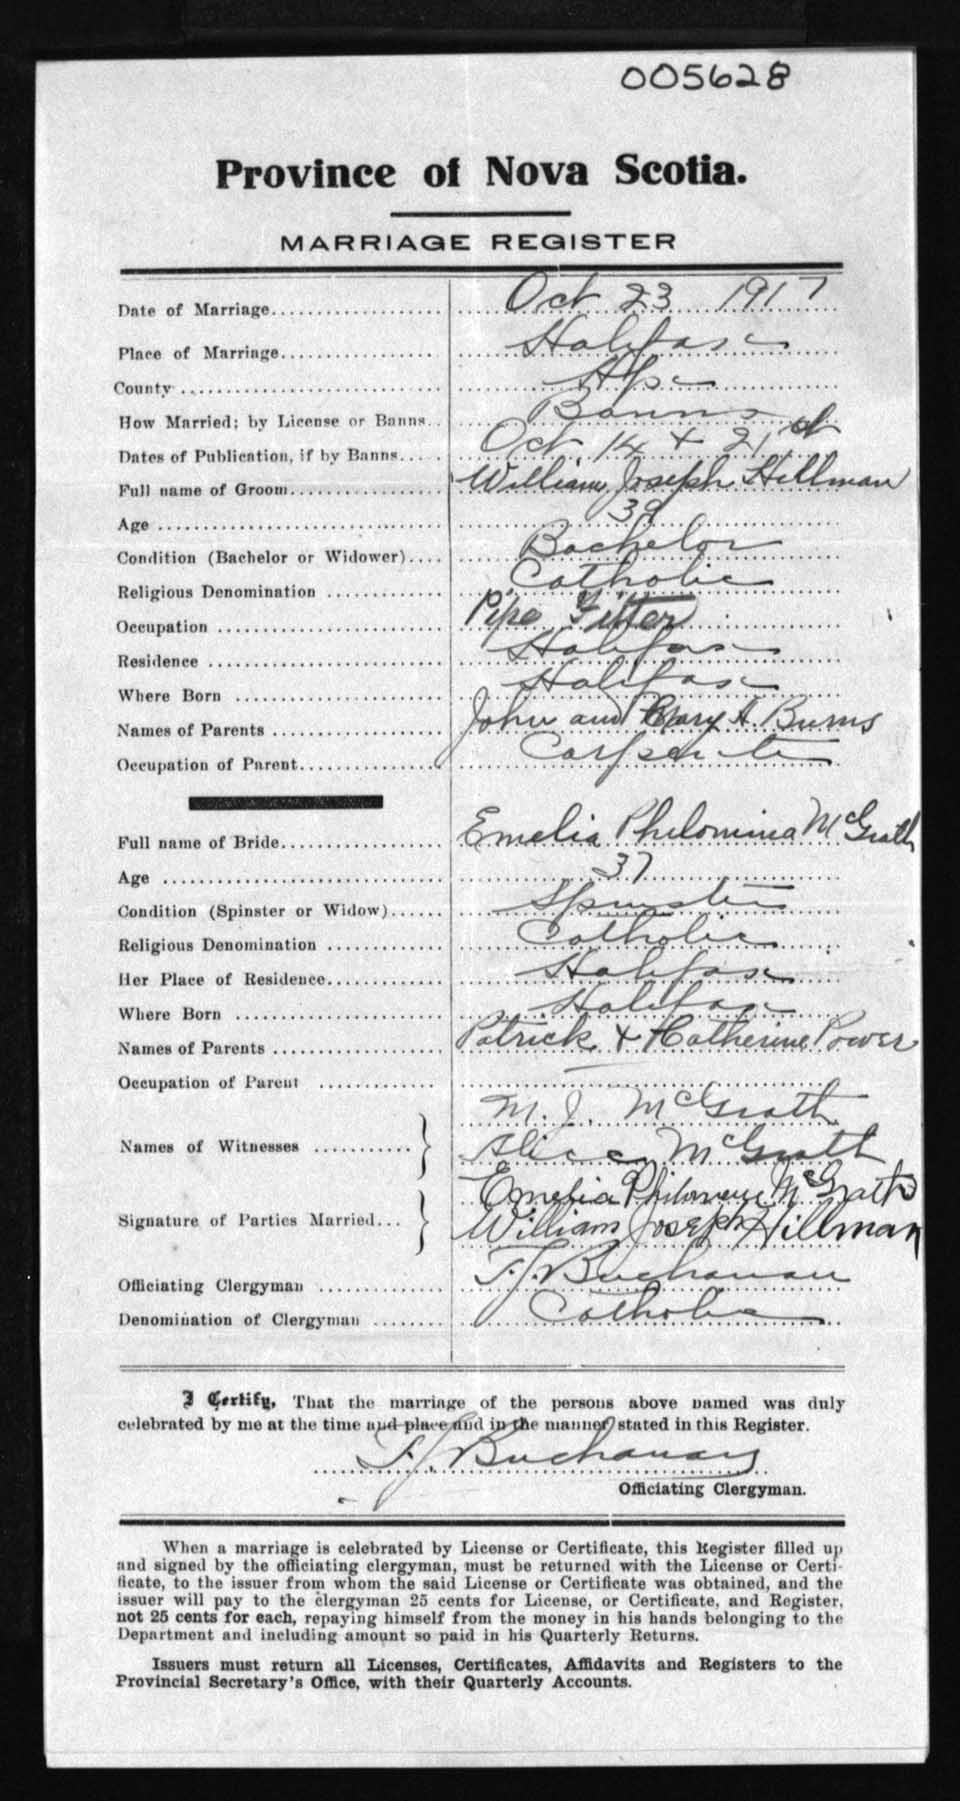 005628
Province of Nova Scotia.
MARRIAGE REGISTER
Date of Marriage Oct 23 1917
Place of Marriage Halifax
County Hfx
How Married; by License or Banns Banns
Dates of Publication, if by Banns Oct. 14 + 21st
Full name of Groom William Joseph Hillman
Age 39
Condition (Bachelor or Widower) Bachelor
Religious Denomination Catholic
Occupation Pipe Fitter
Residence Halifax
Where Born Halifax
Names of Parents John and Mary A. Burns
Occupation of Parent Carpenter
Full name of Bride Emelia Philomina McGrath
Age 37
Condition (Spinster or Widow) Spinster
Religious Denomination Catholic
Her Place of Residence Halifax
Where Born Halifax
Names of Parents Patrick + Katherine Power
Occupation of Parent
M. J. McGrath
Names of Witnesses
Alice McGrath
Emelia McGrath
Signature of Parties Married William Joseph Hillman
Officiating Clergyman T. J. Buchanan
Denomination of Clergyman Catholic
I Certify, That the marriage of the persons above named was duly
celebrated by me at the time and place and in the manner stated in this Register.
T. J. Buchanan
Officiating Clergyman.
When a marriage is celebrated by License or Certificate, this Register filled up
and signed by the officiating clergyman, must be returned with the License or Certi-
ficate, to the issuer from whom the said License or Certificate was obtained, and the
issuer will pay to the clergyman 25 cents for License, or Certificate, and Register,
not 25 cents for each, repaying himself from the money in his hands belonging to the
Department and including amount so paid in his Quarterly Returns.
Issuers must return all Licenses, Certificates, Affidavits and Registers to the
Provincial Secretary's Office, with their Quarterly Accounts.